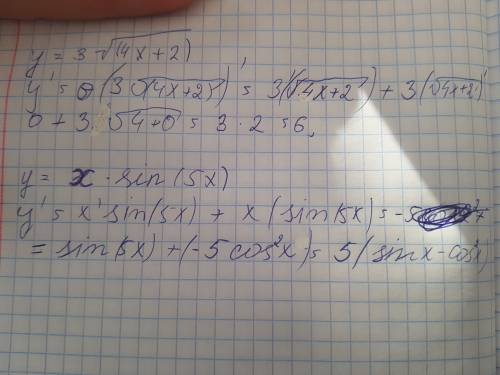 y = 3√(4x+2)
y' = (3√(4x+2))' = 3'(√4x+2) + 3(√4x+2)'
0 + 3 √4+0 = 3 · 2 = 6,
y = x · sin(5x)
y' = x' sin(5x) + x(sin(5x) = -5
= sin(5x) + (-5cos²x) = 5(sinx - cos²x)